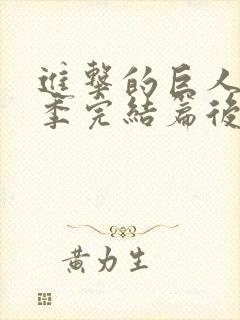 進撃的巨人
季完結篇後
黃力生